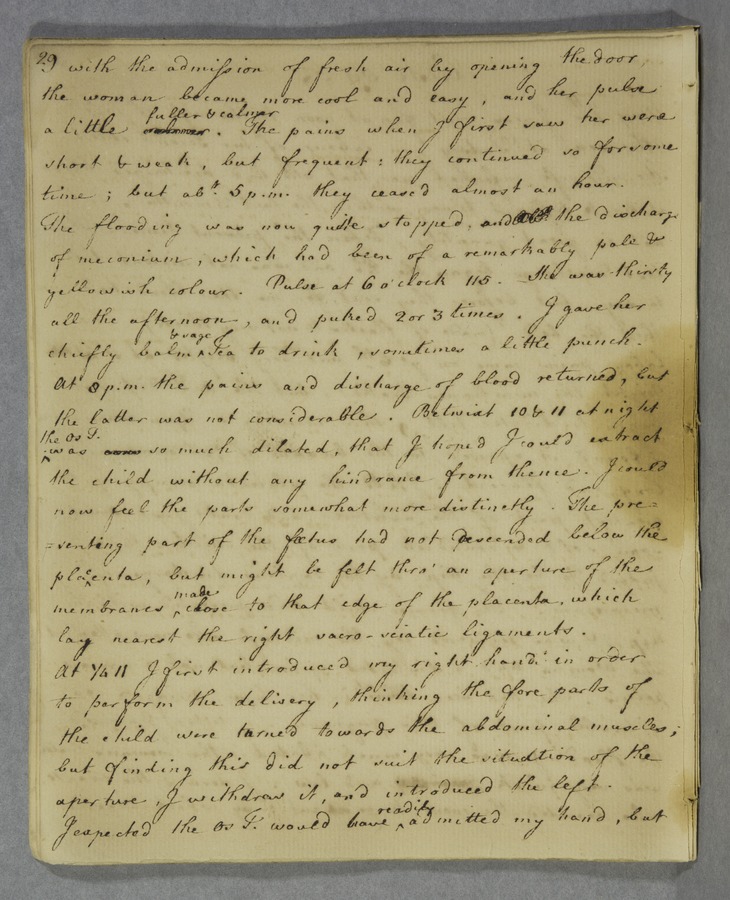 29) with the admission of fresh air by opening the door,
the woman became more cool and easy, and her pulse
fuller & calmer
a little calmer. The pains when I first saw her were
short & weak, but frequent: they continued so for some
time; but abt. 5 p.m. they ceased almost an hour.
The flooding was now quite stopped, and the discharge
of meconium, which had been of a remarkably pale &
yellowish colour. Pulse at 6 o'clock 115. She was thirsty
all the afternoon, and puked 2 or 3 times. I gave her
& sage
chiefly balm ^ Tea to drink, sometimes a little punch.
At 8 p.m. the pains and discharge of blood returned, but
the latter was not considerable. Betwixt 10 & 11 at night
the Os T.
^ was so much dilated, that I hoped I could extract
the child without any hindrance from thence. I could
now feel the parts somewhat more distinctly. The pre=
=senting part of the fœtus had not descended below the
placenta, but might be felt thro' an aperture of the
made
membranes ^ close to that edge of the placenta, which
lay nearest the right sacro-sciatic ligaments.
At 1/4 11 I first introduced my right hand in order
to perform the delivery, thinking the fore parts of
the child were turned towards the abdominal muscles;
but finding this did not suit the situation of the
aperture, I withdrew it, and introduced the left.
readily
I expected the Os T. would have ^ admitted my hand, but